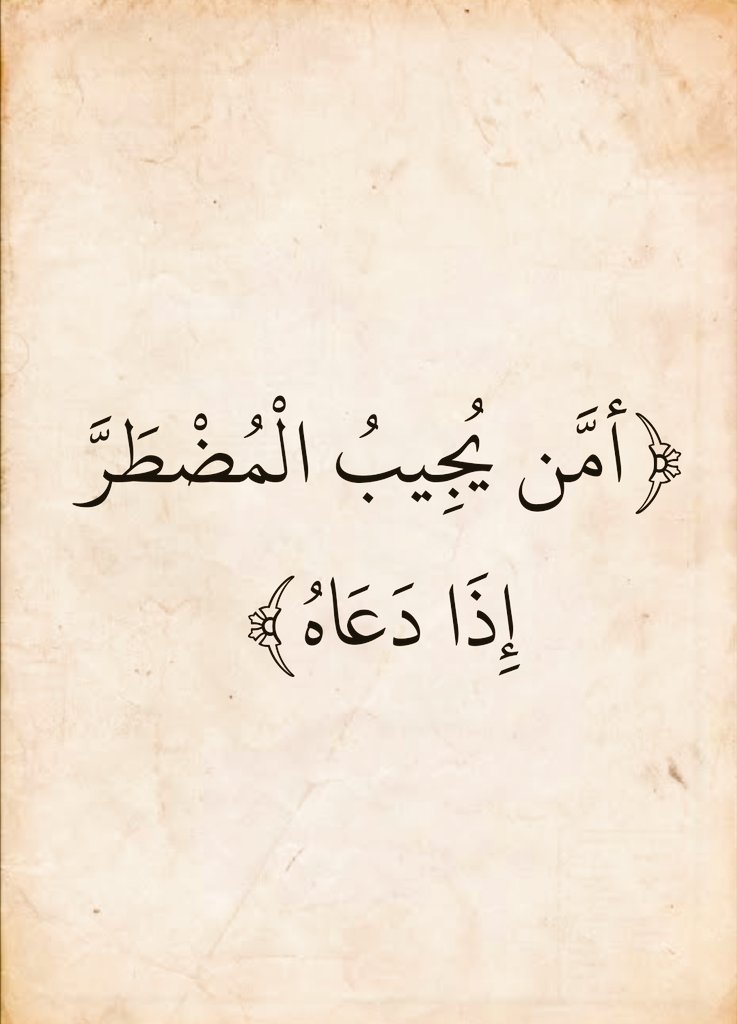 ﴿أَمَّن يُجِيبُ الْمُضْطَرَّ
إِذَا دَعَاهُ﴾